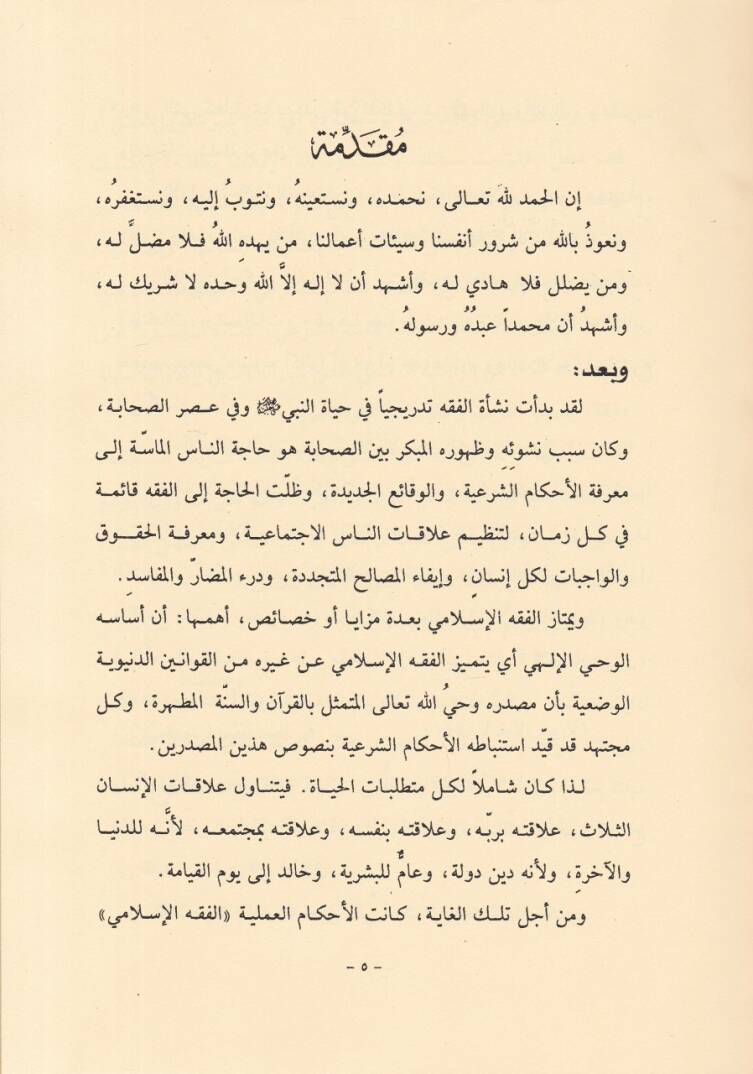 مُقَدِّمة
إن الحمد لله تعـالى، نحمـده، ونستعينهُ، ونتـوبُ إليـه، ونستغفرُه،
ونعوذُ بالله من شرور أنفسنا وسيئات أعمالنا، من يهدهِ اللهُ فـلا مضلَّ لـه،
ومن يضلل فلا هادي لـه، وأشهـد أن لا إله إلاَّ الله وحـده لا شريك له،
وأشهدُ أن محمداً عبدُهُ ورسولهُ.
وبعد:
لقد بدأت نشأة الفقه تدريجياً في حياة النبي ﷺ وفي عـصر الصحابة،
وكان سبب نشوئِهِ وظهوره المبكر بين الصحابة هو حاجة الناس الماسّة إلى
معرفة الأحكام الشرعية، والوقائع الجديدة، وظلّت الحاجة إلى الفقه قائمـة
في كـل زمـان، لتنظيـم علاقات الناس الاجتماعيـة، ومعرفـة الحقـوق
والواجبات لكل إنسانٍ، وإيفاء المصالح المتجددة، ودرء المضارّ والمفاسدِ.
ويمتاز الفقه الإسـلامي بعـدة مزايـا أو خصائص، أهمـها: أن أساسه
الوحـي الإلـهي أي يتميـز الفقـه الإسلامي عـن غيره مـن القوانين الدنيوية
الوضعية بأن مصدره وحيُ الله تعالى المتمثل بالقرآن والسنّة المطهـرة، وكـل
مجتهد قد قيّد استنباطه الأحكام الشرعية بنصوص هذين المصدرين.
لـذا كـان شاملاً لكـل متطلبات الحيـاة. فيتناول علاقات الإنسـان
الثلاث، علاقتـه بربّـه، وعلاقتـه بنفسـه، وعلاقتـه بمجتمعـه، لأنَّـه للدنيـا
والآخرةِ، ولأنه دين دولة، وعامٌّ للبشرية، وخالد إلى يوم القيامة.
ومن أجل تلـك الغاية، كـانت الأحكـام العملية «الفقـه الإسـلامي»
- ٥ -